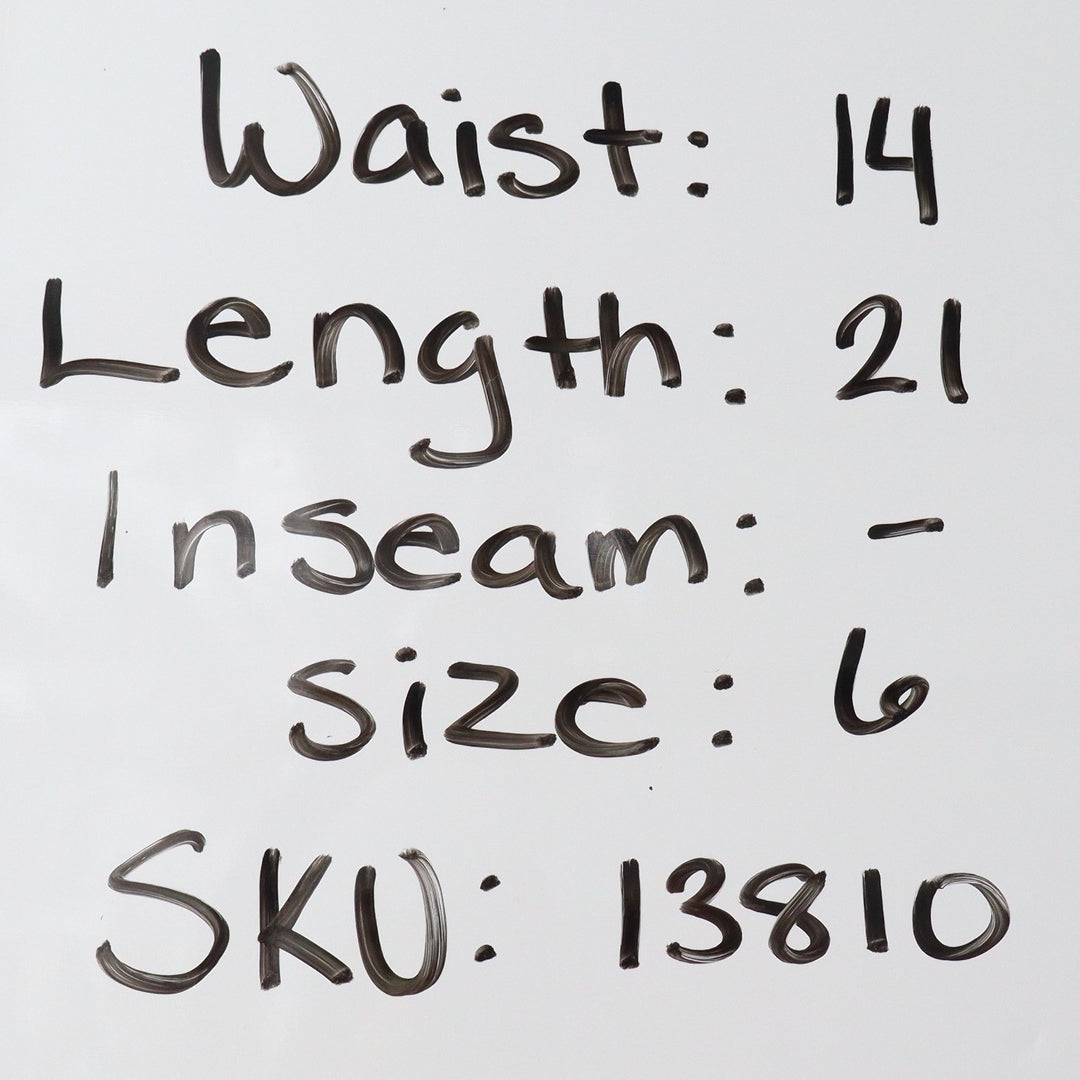 Waist: 14
Length: 21
Inseam: -
Size: 6
SKU: 13810